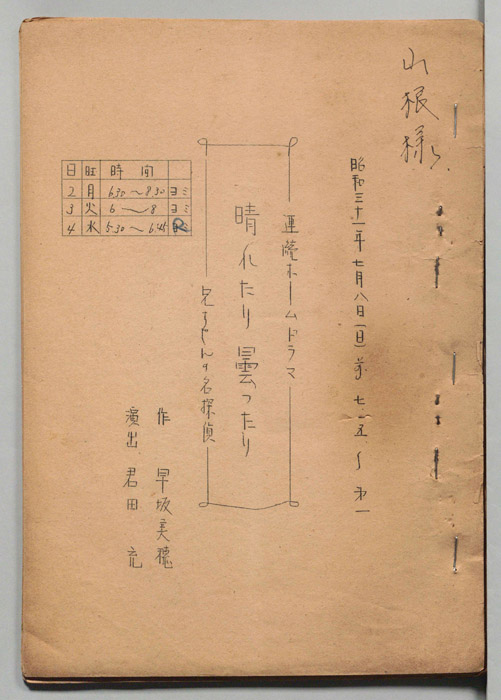 山根様
昭和三十一年七月八日(日)前七・一五〜第一
連続ホームドラマ
晴れたり曇ったり
兄さんは名探偵
作 早坂美穂
演出 君田充
日 旺 時間
2 月 6.30〜8.30 ヨミ
3 火 6〜8 ヨミ
4 水 5.30〜6.45